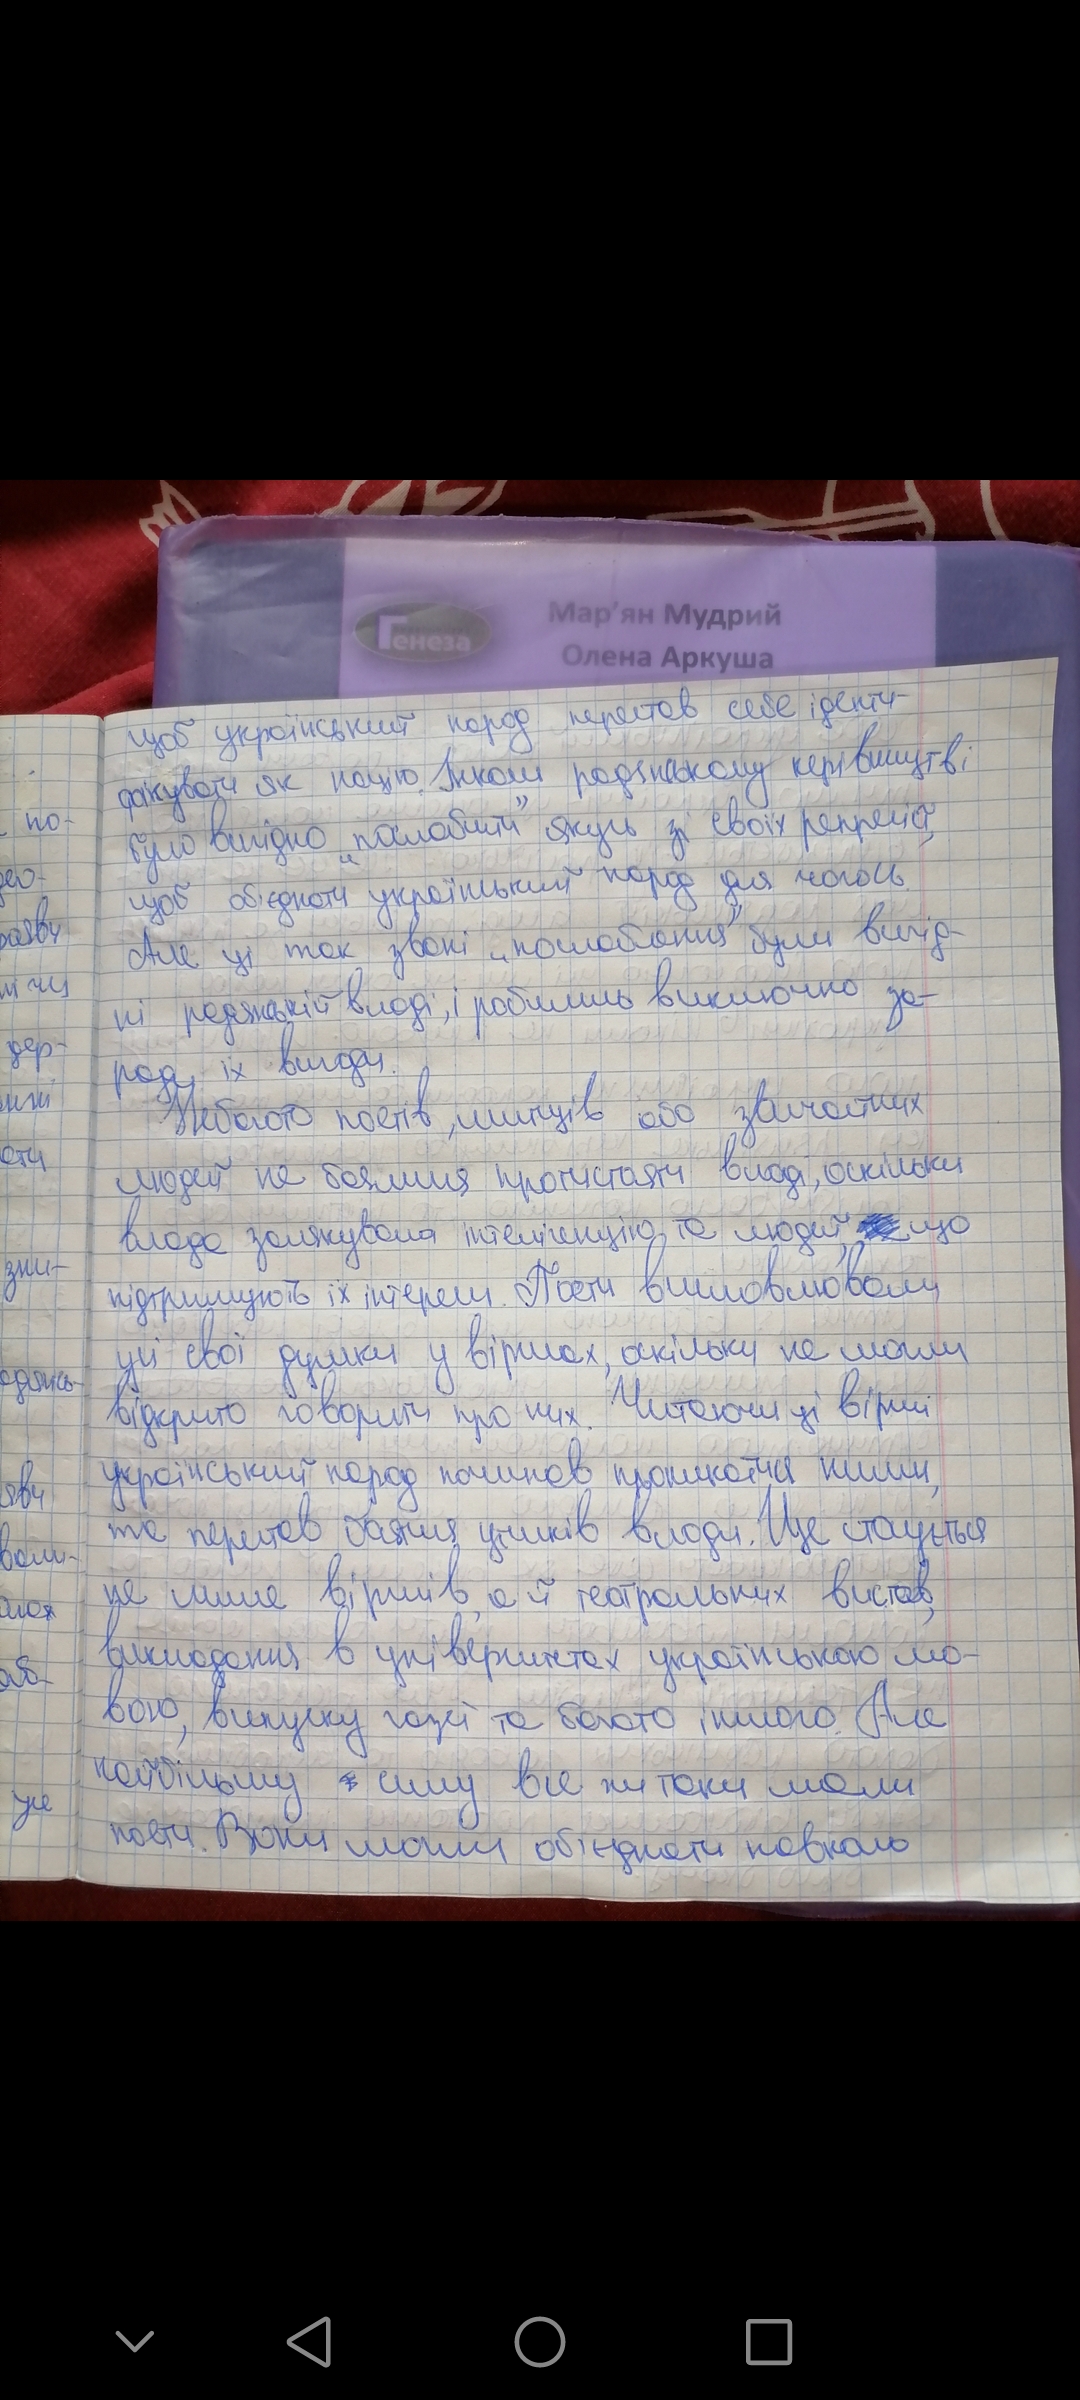 Генеза
Мар'ян Мудрий
Олена Аркуша
щоб український народ перестав себе іденти-
фікувати як націю. Інколи радянському керівництві
було вигідно „послабити" якусь зі своїх репресій,
щоб об'єднати український народ для чогось.
Але ці так звані „послаблення" були вигід-
ні радянській владі, і робились виключно за-
ради їх вигоди.
Небагато поетів, митців або звичайних
людей не боялися протистояти владі, оскільки
влада залякувала інтелігенцію та людей, що
підтримують їх інтереси. Поети висловлювали
усі свої думки у віршах, оскільки не могли
відкрито говорити про них. Читаючи ці вірші
український народ починав проникатися ними,
та перестав боятися утисків влади. Це стоується
не лише віршів, а й театральних вистав,
викладання в університетах українською мо-
вою, випуску газет та багато іншого. Але
найбільшу силу все ж таки мали
поети. Вони могли об'єднати навколо
по-
део-
разву
дер-
ати
зни-
одянсь-
яву
вали-
або-
уже